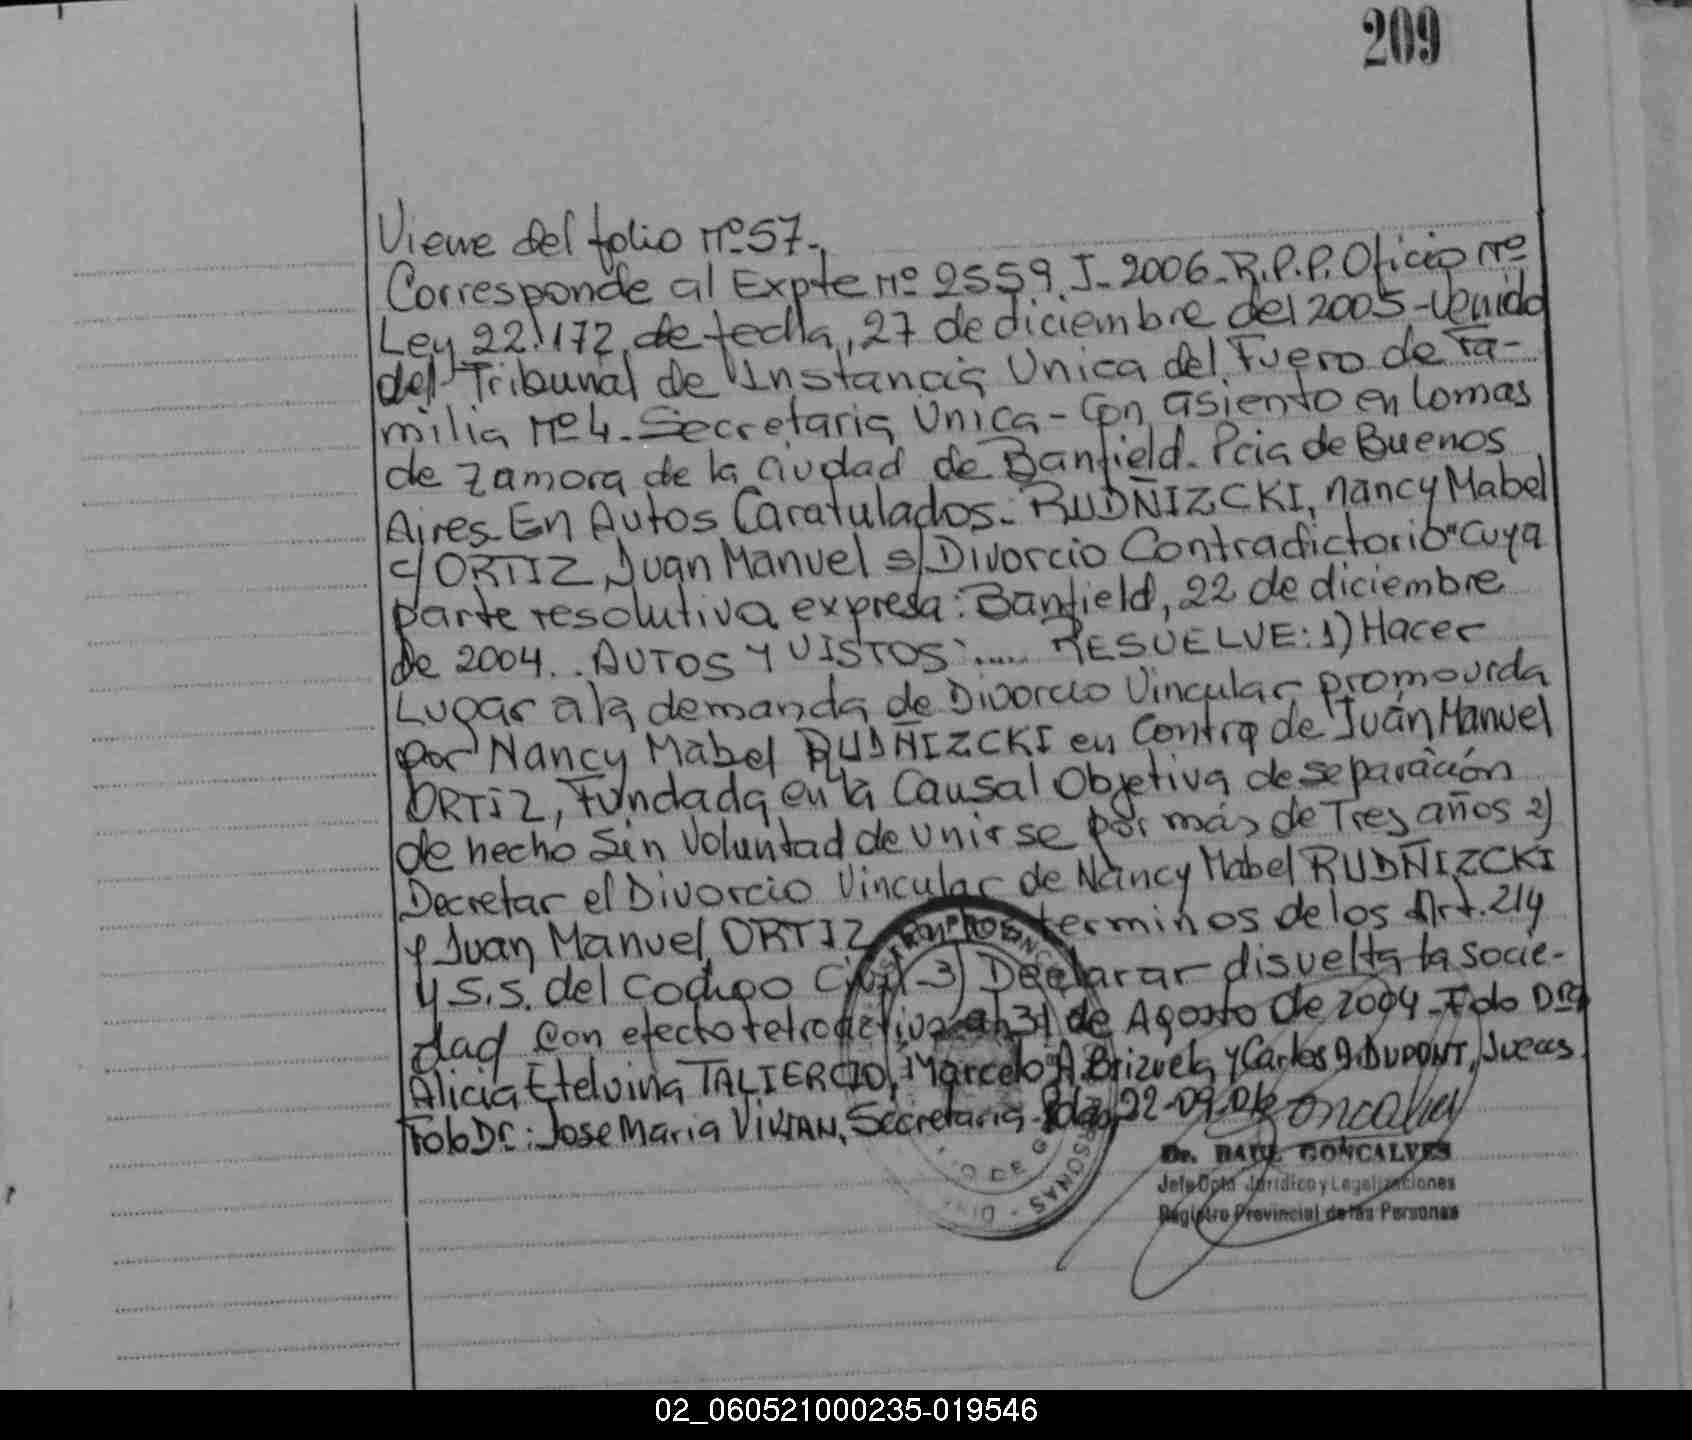 209
Viene del folio Nº 57.-
Corresponde al Expte Nº 2559. J- 2006- R.P.P. Oficio Nº
Ley 22.172 de fecha, 27 de diciembre del 2005- Venido
del Tribunal de Instancia Unica del Fuero de Fa-
milia Nº 4- Secretaria Unica - Con asiento en Lomas
de Zamora de la ciudad de Banfield. Pcia de Buenos
Aires- En Autos Caratulados- RUDÑIZCKI, Nancy Mabel
c/ ORTIZ, Juan Manuel s/ Divorcio Contradictorio" cuya
parte resolutiva expresa: Banfield, 22 de diciembre
de 2004... AUTOS Y VISTOS:..... RESUELVE: 1) Hacer
Lugar a la demanda de Divorcio Vincular promovida
por Nancy Mabel RUDÑIZCKI en contra de Juan Manuel
ORTIZ, Fundada en la Causal Objetiva de separación
de hecho Sin Voluntad de unirse por más de Tres años 2)
Decretar el Divorcio Vincular de Nancy Mabel RUDÑIZCKI
y Juan Manuel ORTIZ terminos de los Art. 214
y S.S. del Codigo Civil-3) Declarar disuelta la socie-
dad con efecto retroactivo al 31 de Agosto de 2004- Fdo Dres
Alicia Etelvina TALIERCIO, Marcelo A. Brizuela y Carlos J. DUPONT, Jueces
Fdo Dr: Jose Maria VIVIAN, Secretaria- 22-09-06
Dr. RAUL GONCALVES
Jefe Dpto Jurídico y Legalizaciones
Registro Provincial de las Personas
PERSONAS
02_060521000235-019546